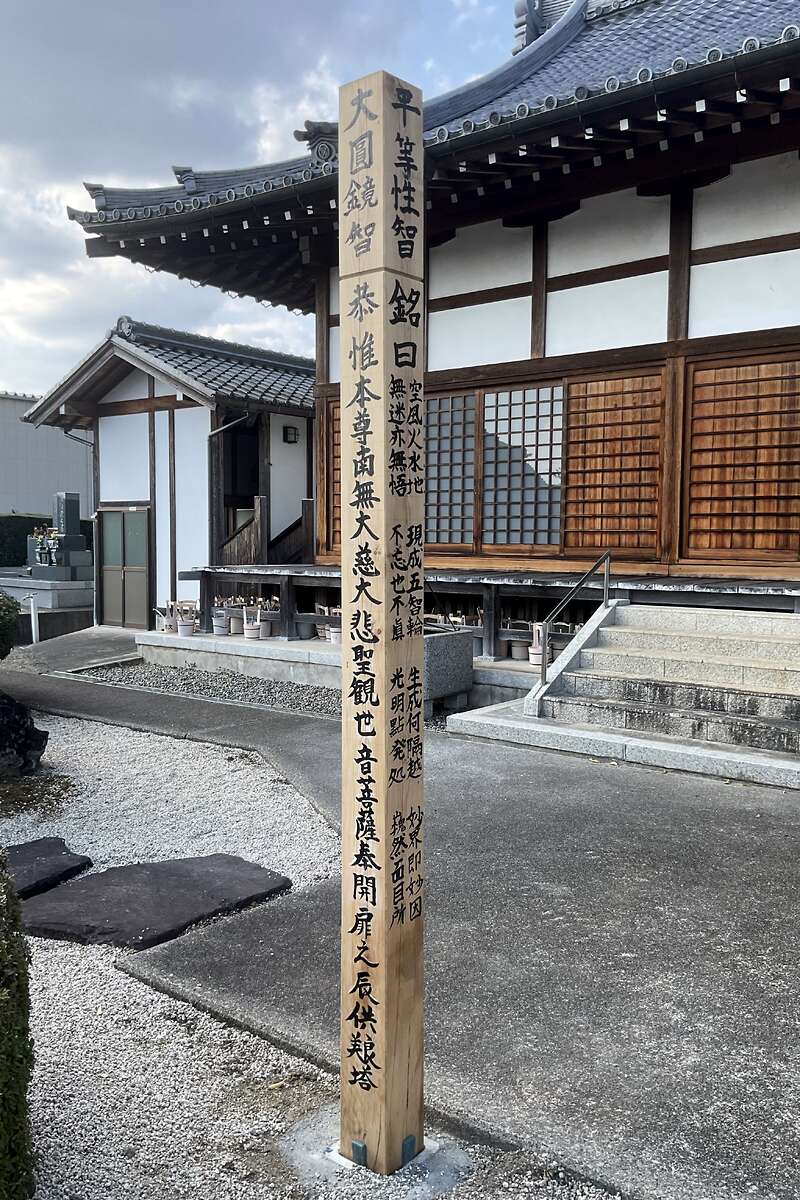 平等性智
銘曰
空風火水地 現成五智輪 生成何隔越 妙界即妙因
無迷亦無悟 不忘也不眞 光明點発処 巍然面目所
大圓鏡智
恭惟本尊南無大慈大悲聖観世音菩薩奉開扉之辰供養塔